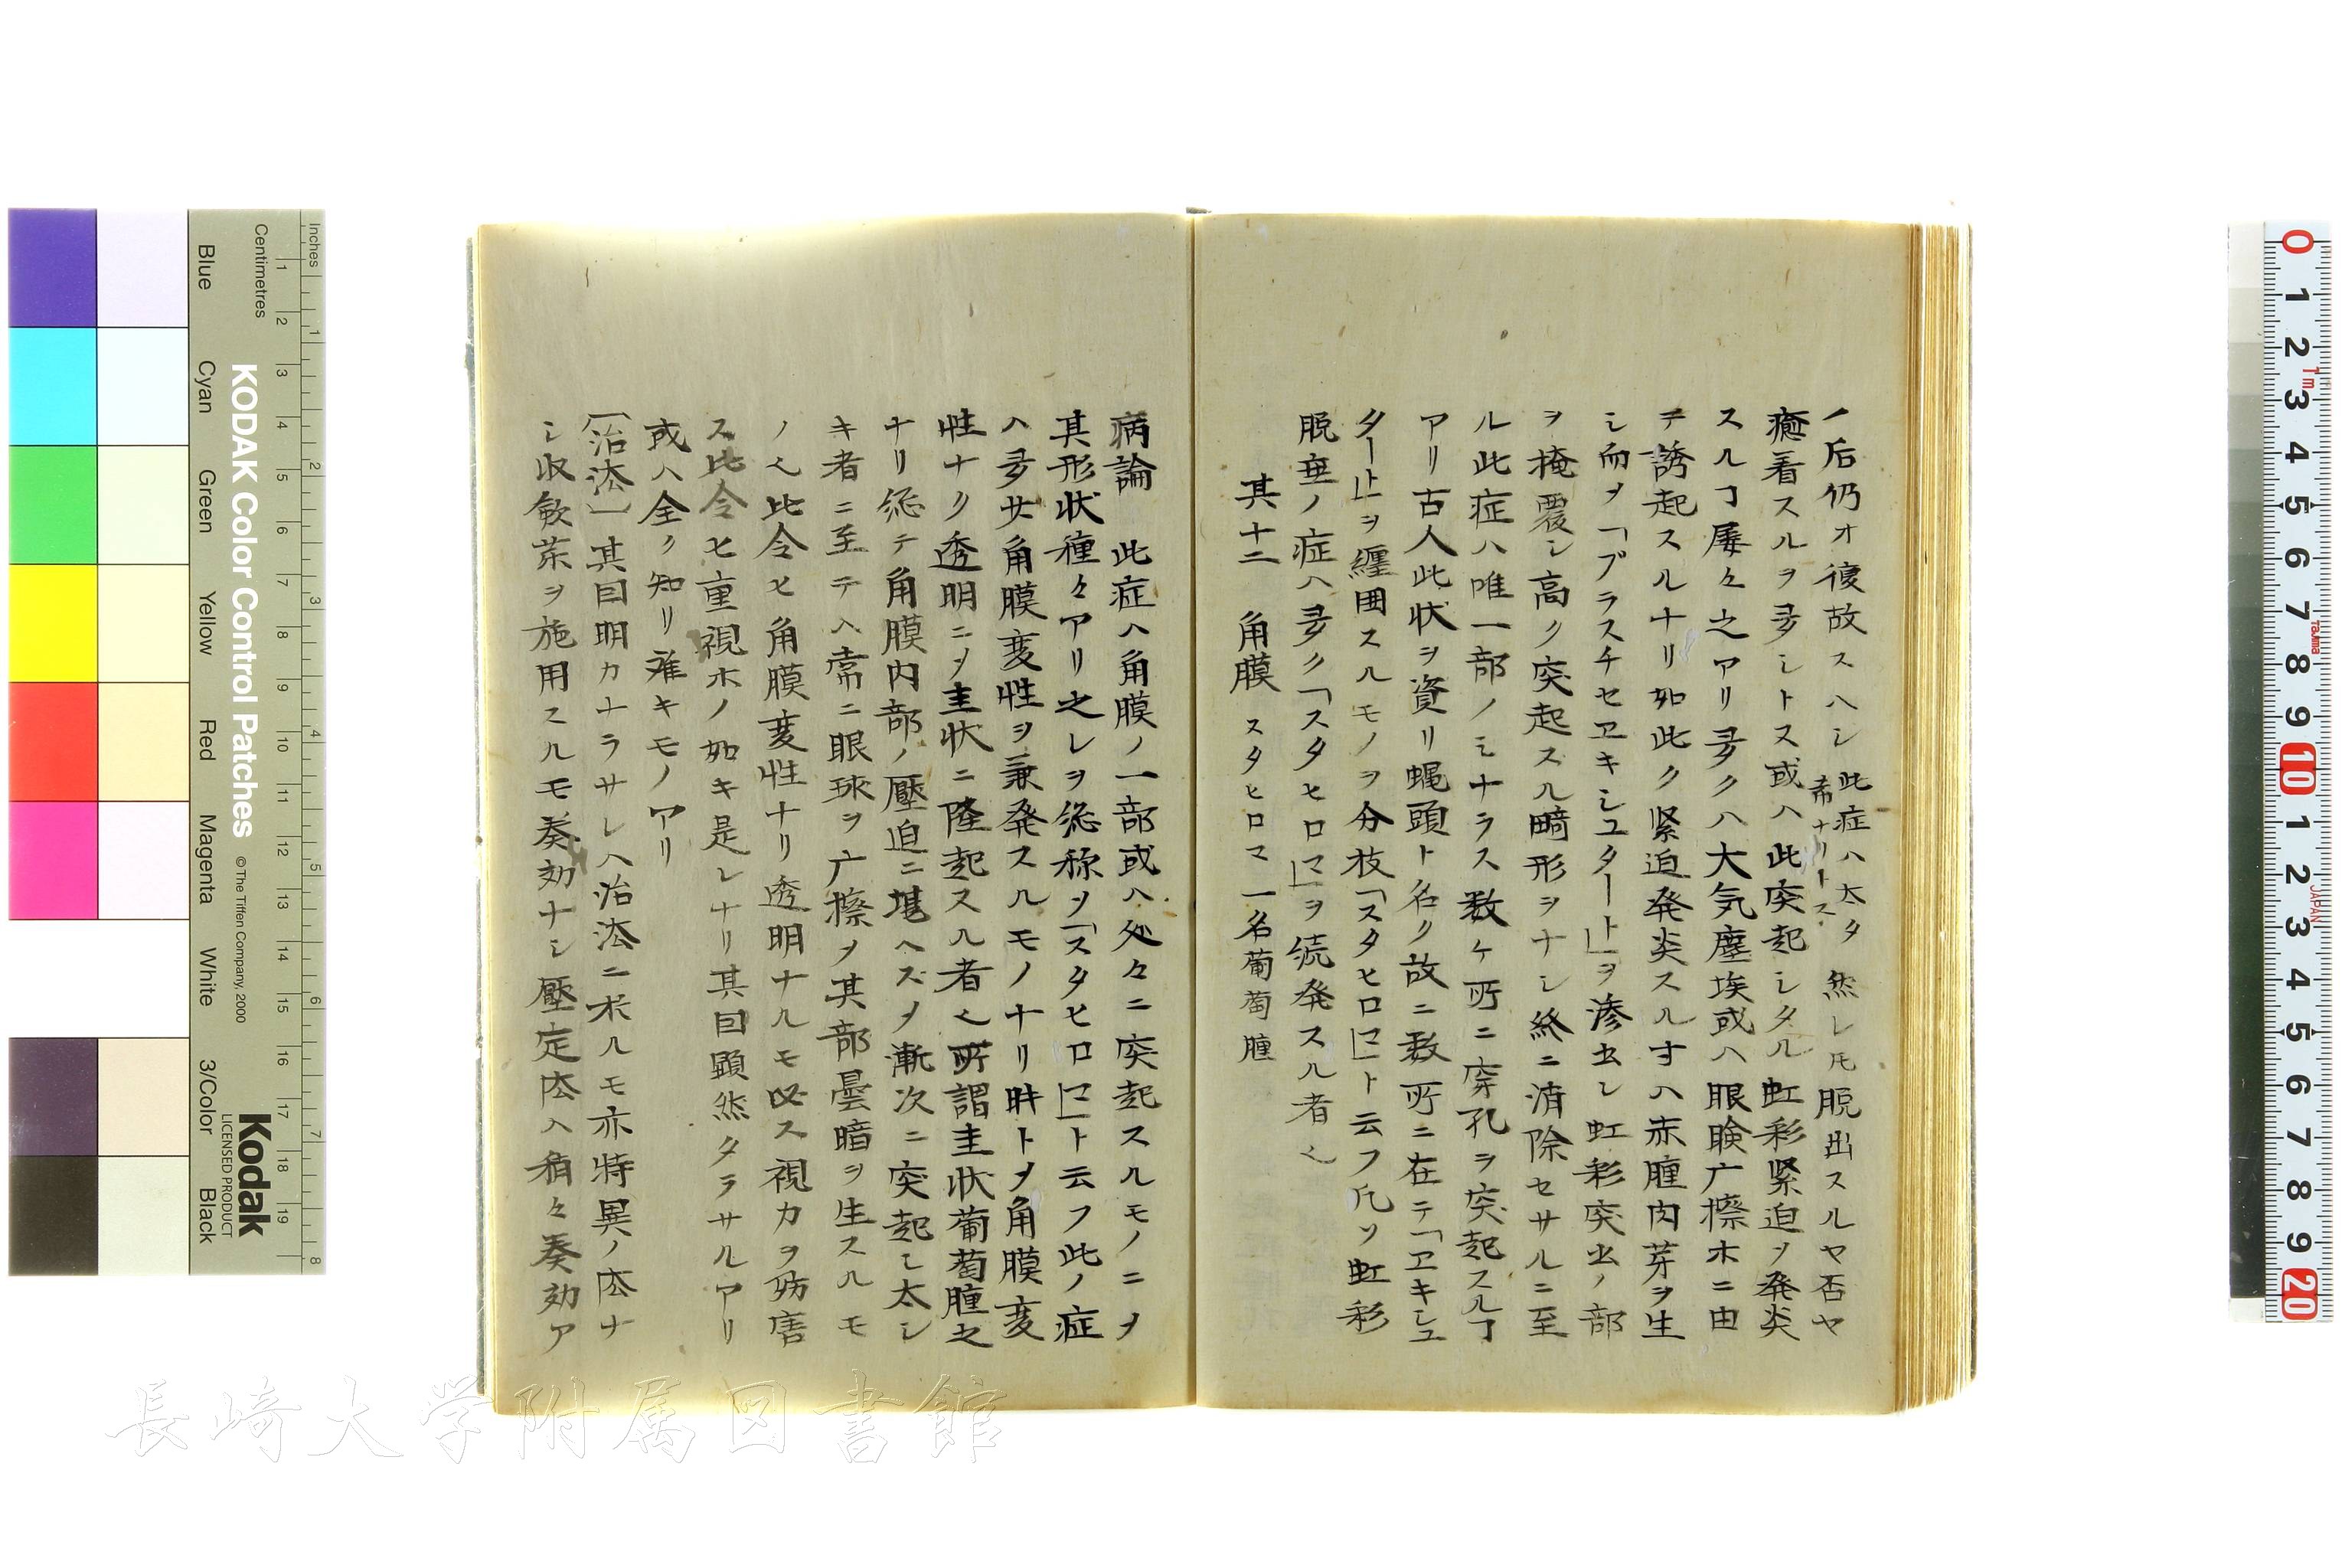 ノ后仍オ復故スヘシ 此症ハ太タ
希ナリトス 然レ𪜈脱出スルヤ否ヤ
癒着スルヲ多シトス或ハ此突起シタル虹彩緊迫ヲ発炎
スルヿ屡々之アリ多クハ大気塵埃或ハ眼瞼广擦ホニ由
テ誘起スルナリ如此ク緊迫発炎スル寸ハ赤腫肉芽ヲ生
シ而〆「プラスチセヱキシユタート」ヲ滲出シ虹彩突出ノ部
ヲ掩覆シ高ク突起スル畸形ヲナシ終ニ消除セサルニ至
ル此症ハ唯一部ノミナラス数ケ所ニ穿孔ヲ突起スルヿ
アリ古人此状ヲ資リ蝿頭ト名ク故ニ数所ニ在テ「ヱキシユ
タート」ヲ纏囲スルモノヲ分枝「スタヒロマ」ト云フ凡ソ虹彩
脱垂ノ症ハ多ク「スタヒロマ」ヲ続発スル者也
其十二 角膜 スタヒロマ 一名葡萄腫
病論 此症ハ角膜ノ一部或ハ処々ニ突起スルモノニ〆
其形状種々アリ之レヲ総称ヲ「スタヒロマ」ト云フ此ノ症
ハ多廿角膜変性ヲ兼発スルモノナリ時ト〆角膜変
性ナク透明ニ〆圭状ニ隆起スル者也所謂圭状葡萄腫之
ナリ総テ角膜内部ノ壓迫ニ堪ヘズ〆漸次ニ突起シ太シ
キ者ニ至テハ常ニ眼球ヲ广擦〆其部曇暗ヲ生スルモ
ノ也比令ヒ角膜変性ナリ透明ナルモ必ス視力ヲ妨害
ス比令ヒ重視ホノ如キ是レナリ其目顕然タラサルアリ
或ハ全ク知リ難キモノアリ
〔治法〕其目明カナラサレハ治法ニ於ルモ亦特異ノ法ナ
シ收斂茶ヲ施用スルモ奏効ナシ壓定法ハ稍々奏効ア
Inches
Centimetres
KODAK Color Control Patches
© The Tiffen Company, 2000
Kodak
LICENSED PRODUCT
Blue
Cyan
Green
Yellow
Red
Magenta
White
3/Color
Black
長崎大学附属図書館